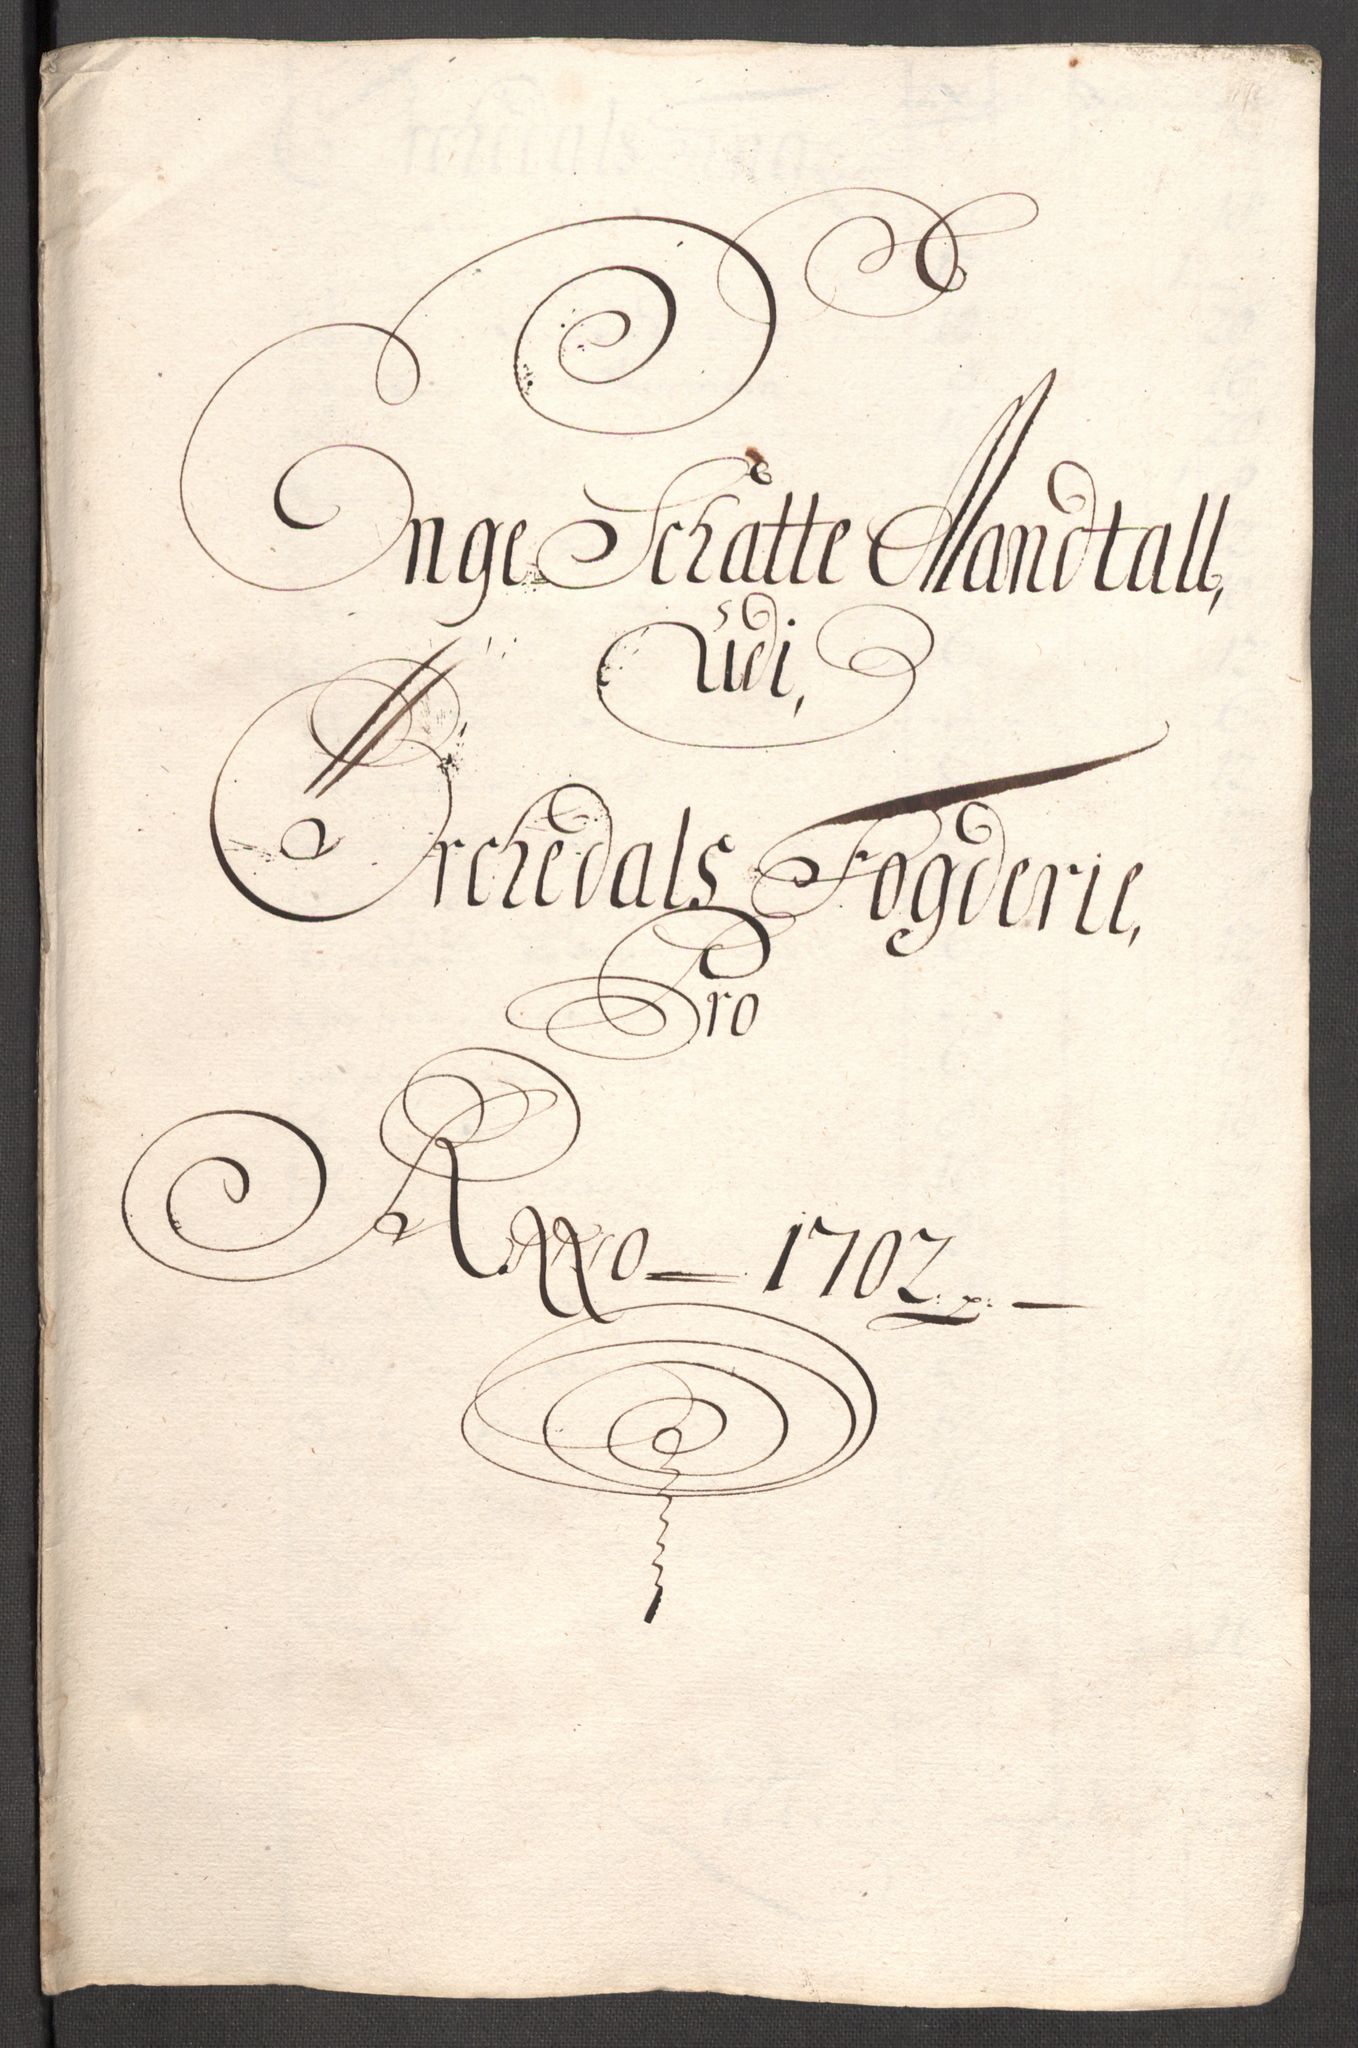 Enge Schatte Mandtall,
Udi,
Orchedals Fogderie,
Pro
Anno 1702